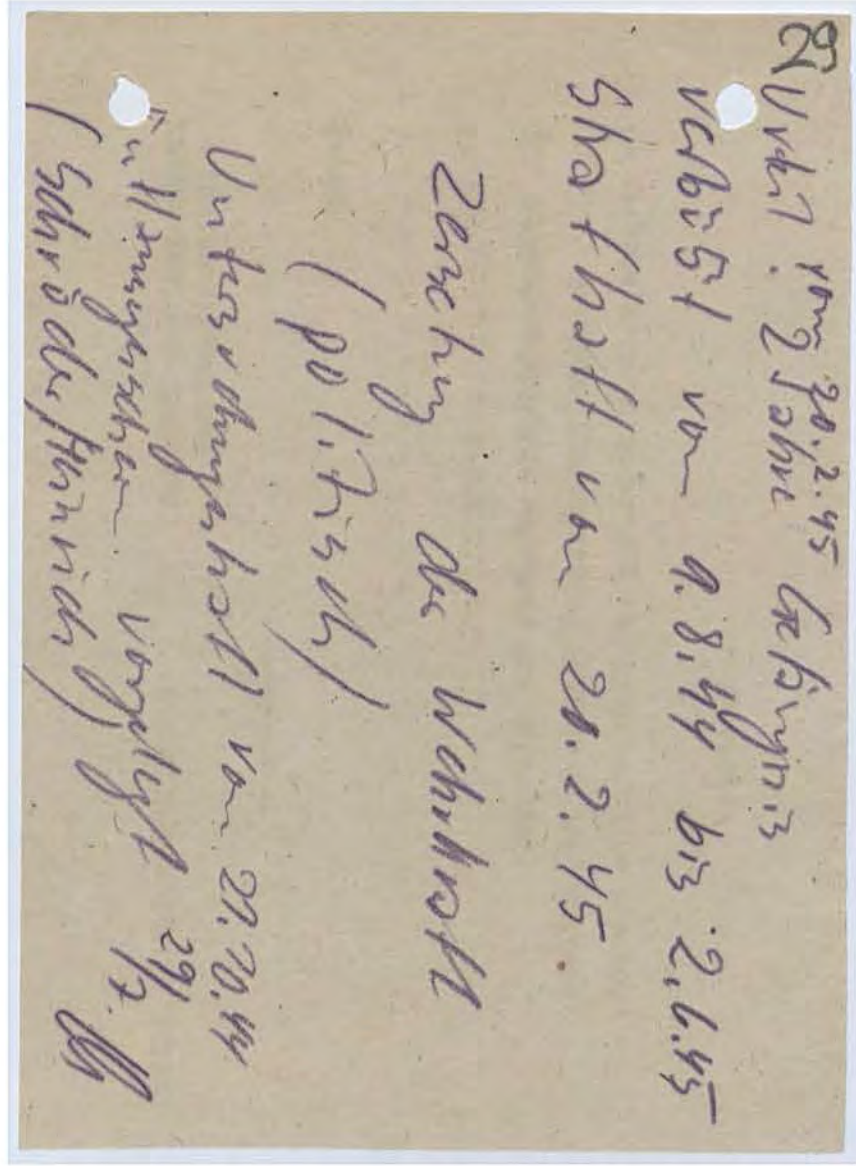 29
Urteil: vom 20.2.45
2 Jahre Gefängnis
verbüßt von 1.8.44 bis 2.6.45
Strafhaft von 20.2.45.
Zersetzung der Wehrkraft
(politisch)
Untersuchungshaft von
Entlassungsschein vorgelegt 29/7.
(Schröder, Heinrich)